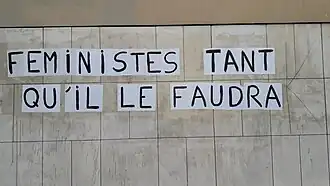 FEMINISTES TANT
QU'IL LE FAUDRA